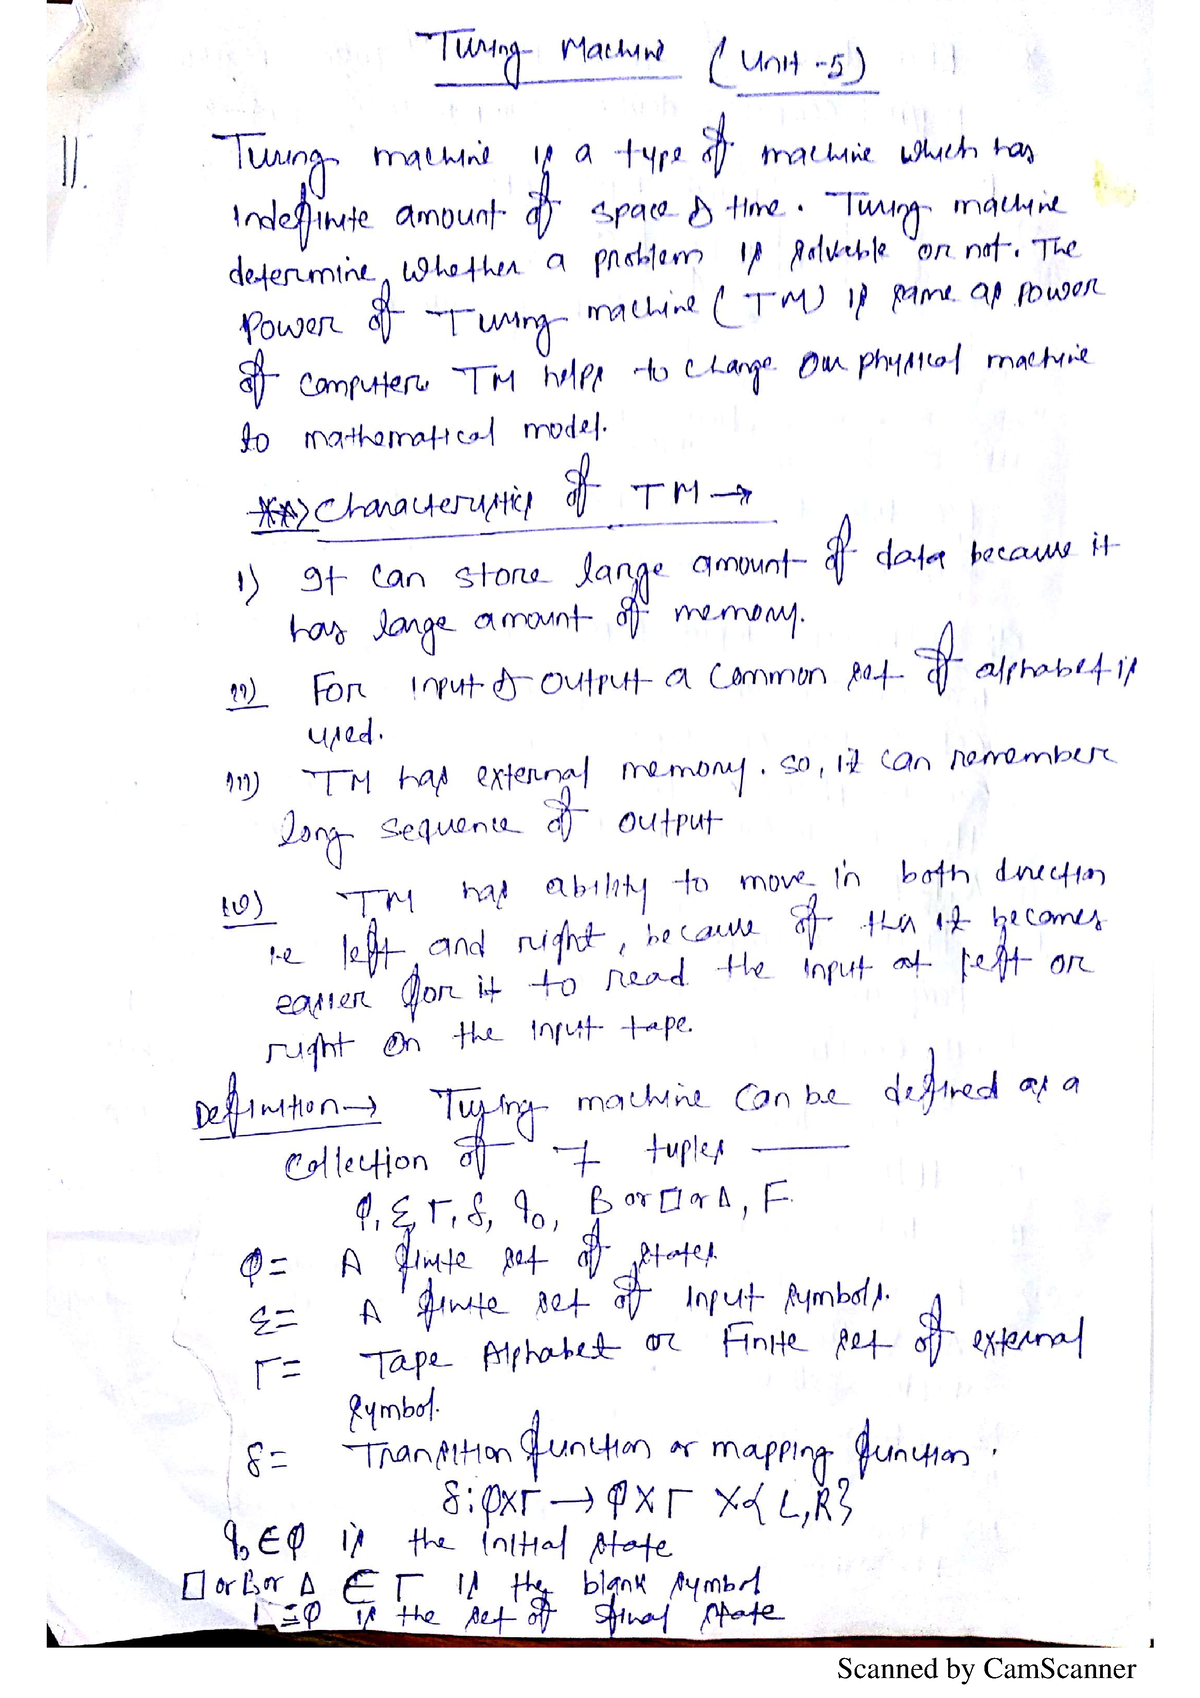 Turing Machine (Unit -5)
11. Turing machine is a type of machine which has
indefinite amount of space & time. Turing machine
determine, whether a problem is solvable or not. The
Power of Turing machine (TM) is same as power
of computer. TM helps to change our physical machine
to mathematical model.
**) Characteristics of TM →
i) It can store large amount of data because it
has large amount of memory.
ii) For input & output a common set of alphabet is
used.
iii) TM has external memory. so, it can remember
long sequence of output
iv) TM has ability to move in both direction
i.e left and right, because of this it becomes
easier for it to read the input at left or
right on the input tape.
Definition → Turing machine can be defined as a
collection of 7 tuples —
Q, Σ, Γ, δ, q₀, B or □ or Δ, F.
Q = A finite set of states.
Σ = A finite set of input symbols.
Γ = Tape Alphabet or Finite set of external
symbol.
δ = Transition function or mapping function.
δ: Q×Γ → Q×Γ×{L,R}
q₀ ∈ Q is the initial state
□ or B or Δ ∈ Γ is the blank symbol
is the set of final state
Scanned by CamScanner